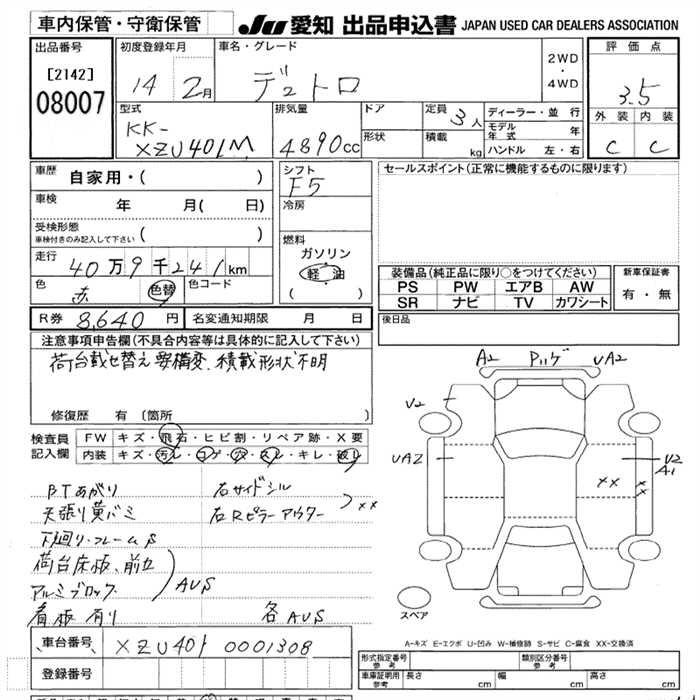 車内保管・守衛保管
JU 愛知 出品申込書 JAPAN USED CAR DEALERS ASSOCIATION
出品番号
[2142]
08007
初度登録年月
14 2月
車名・グレード
デュトロ
2WD
・
4WD
評価点
3.5
外装 内装
C C
型式
KK-
XZU401M
排気量
4890cc
ドア
形状
定員
3人
積載
kg
ディーラー・並行
モデル年式 年
ハンドル 左・右
車歴
自家用・( )
車検
年 月( 日)
受検形態
車検付きのみ記入して下さい ( )
走行
40万9千241km
色
赤 色替
色コード
シフト
F5
冷房
燃料
ガソリン
軽・油
( )
セールスポイント(正常に機能するものに限ります)
装備品(純正品に限り○をつけてください)
PS PW エアB AW
SR ナビ TV カワシート
新車保証書
有・無
R券 8,640円
名変通知期限 月 日
後日品
注意事項申告欄(不具合内容等は具体的に記入して下さい)
荷台載せ替え要構変、積載形状不明
修復歴 有 (箇所
検査員
記入欄
FW キズ・飛石・ヒビ割・リペア跡・X要
内装 キズ・汚れ・コゲ・穴・スレ・キレ・破レ
BTあがり
天張り黄バミ
下廻り・フレームS
荷台床板、前立
アルミブロック
AUS
看板有り
右サイドシル
右Rピラーアウター
××
各AUS
A2
UA2
V2
UA2
V2
A1
××
××
スペア
A-キズ E-エクボ U-凹み W-補修跡 S-サビ C-腐食 XX-交換済
車台番号
XZU401 0001308
登録番号
形式指定番号
参考
類別区分番号
参考
車庫証明用
参考
長さ cm
幅 cm
高さ cm